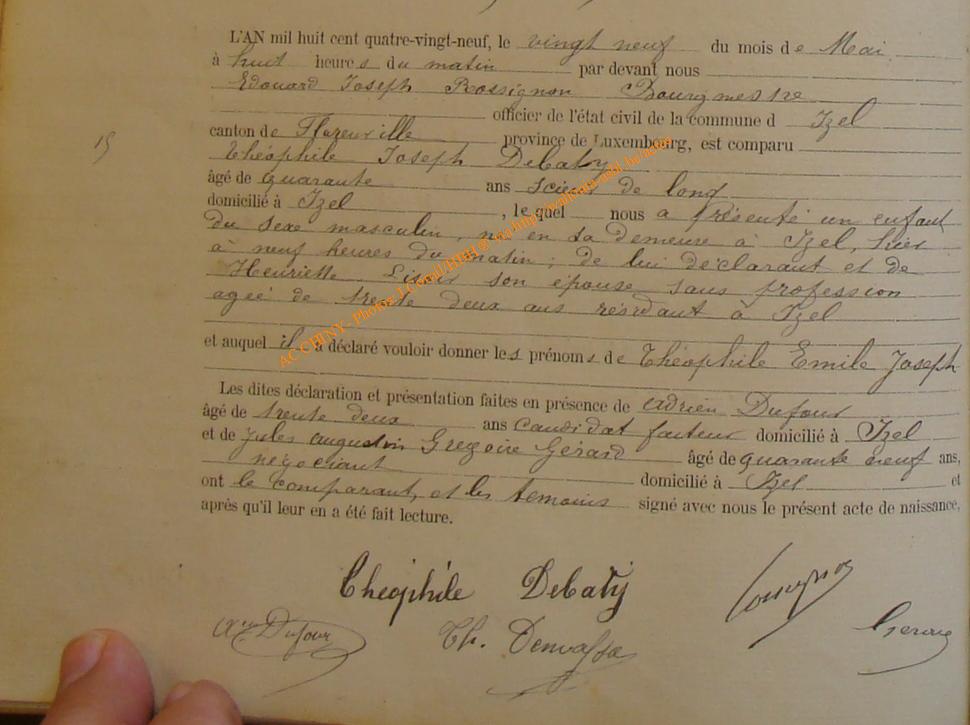 L'AN mil huit cent quatre-vingt-neuf, le vingt neuf du mois de Mai
à huit heures du matin par devant nous
Edouard Joseph Rossignon Bourgmestre
officier de l'état civil de la commune d Izel
canton de Florenville province de Luxembourg, est comparu
15
Théophile Joseph Debaty
âgé de quarante ans scieur de long
domicilié à Izel, lequel nous a présenté un enfant
du sexe masculin, né en sa demeure à Izel, hier
à neuf heures du matin ; de lui déclarant et de
Henriette son épouse sans profession
agée de trente deux ans résidant à Izel
et auquel il a déclaré vouloir donner les prénoms de Théophile Emile Joseph
Les dites déclaration et présentation faites en présence de Adrien Dufour
âgé de trente deux ans candidat facteur domicilié à Izel
et de Jules augustin Gregoire Gérard âgé de quarante neuf ans,
négociant domicilié à Izel et
ont le Comparant, et les temoins signé avec nous le présent acte de naissance,
après qu'il leur en a été fait lecture.
Théophile Debaty
Dufour Th. Gerard